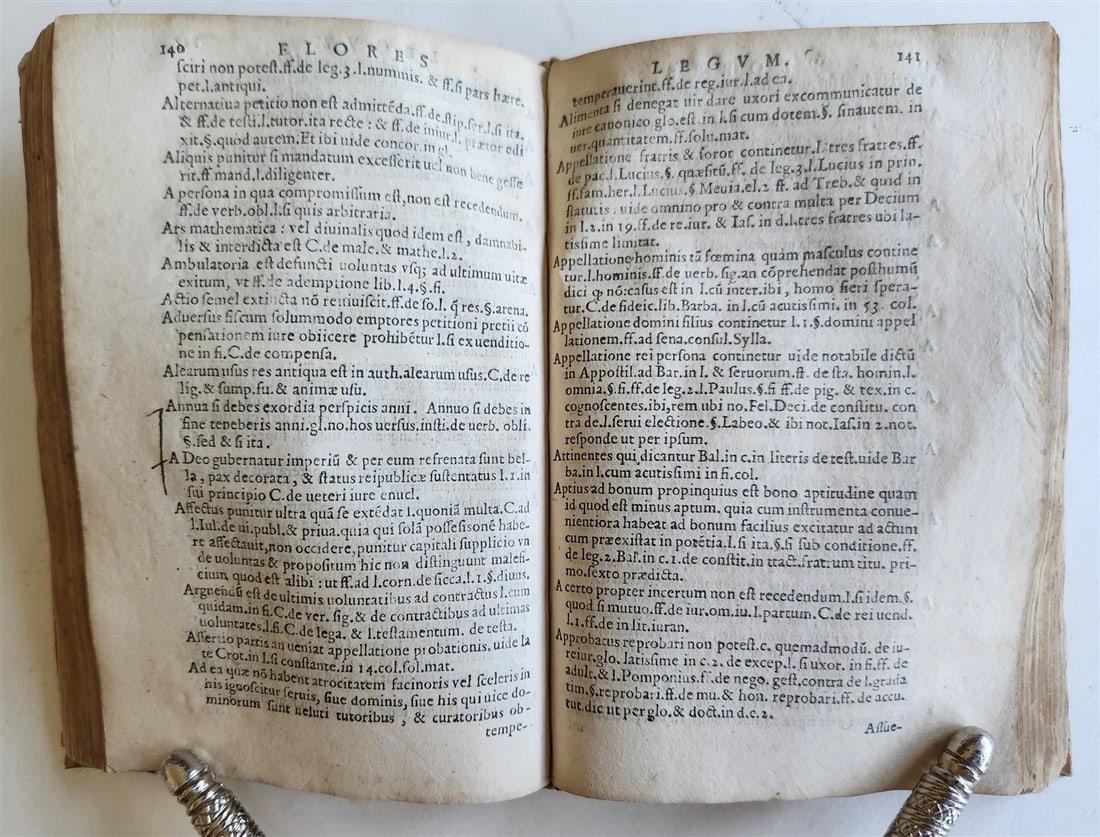 140 FLORES
sciri non potest.ff.de leg.3.l.nummis. & ff.si pars hære.
pet.l.antiqui.
Alternatiua petitio non est admittẽda.ff.de stip.ser.l.si ita.
& ff.de testi.l.tutor.ita recte : & ff.de iniur.l. prætor edi
xit.§.quod autem. Et ibi uide concor.in gl.
Aliquis punitur si mandatum excesserit uel non bene gesse
rit.ff mand.l.diligenter.
A persona in qua compromissium est, non est recedendum.
ff.de verb.obl.l.si quis arbitraria.
Ars mathematica : vel diuinalis quod idem est , damnabi-
lis & interdicta est C.de male.& mathe.l.2.
Ambulatoria est defuncti uoluntas vsq; ad ultimum uitæ
exitum, vt ff.de ademptione lib.l.4.§.fi.
Actio semel extincta nõ reuiuiscit.ff.de so.l. q̃ res.§.arena.
Aduersus fiscum solummodo emptores petitioni pretii cõ
pensationem iure obiicere prohibẽtur.l.si ex uenditio-
ne in fi.C.de compensa.
Alearum usus res antiqua est in auth.alearum usus.C.de re
lig.& sump.fu.& animæ usu.
Annua si debes exordia perspicis anni. Annuo si debes in
fine teneberis anni.gl.no.hos uersus.insti.de uerb. obli.
§.sed & si ita.
A Deo gubernatur imperiũ & per eum refrenata sunt bel-
la , pax decorata, & status reipublicæ sustentatus l.1.in
sui principio C.de ueteri iure enucl.
Affectus punitur ultra quã se extẽdat l.quoniã multa.C.ad
l.Iul.de ui.publ.& priua.quia qui solã possessionẽ habe-
re affectauit, non occidere, punitur capitali supplicio vn
de uoluntas & propositum hic non distinguunt malefi-
cium quod est alibi : ut ff.ad l.corn.de sicca.l.1.§.diuus.
Arguendũ est de ultimis uoluntatibus ad contractus l.cum
quidam.in fi.C.de ver. sig.& de contractibus ad ultimas
uoluntates.l.fi.C.de lega. & l.testamentum. de testa.
Assertio partis an ueniat appellatione probationis. uide la
te Crot.in l.si constante.in 14.col.sol.mat.
Ad ea quæ nõ habent atrocitatem facinoris vel sceleris in
nis ignoscitur seruis, siue dominis, siue his qui uice do-
minorum sunt ueluti tutoribus , & curatoribus ob-
tempe-
LEGVM. 141
temperauerint.ff.de reg.iur.l.ad ea.
Alimenta si denegat uir dare uxori excommunicatur de
iure canonico glo.est in l.si cum dotem.§. sinautem. in
uer.quantitatem.ff.solu.mat.
Appellatione fratris & soror continetur.l.tres fratres.ff.
de pac.l.Lucius.§. quæsitũ.ff. de leg.3.l.Lucius in prin.
ff.fam.her.l.Lucius.§ Meuia.el.2 ff. ad Treb.& quid in
statutis . uide omnino pro & contra multa per Decium
in l.2.in 19.ff.de re.iur. & Ias. in d.l.tres fratres ubi la-
tissime limitat.
Appellatione hominis tã fœmina quàm masculus contine
tur.l.hominis.ff.de uerb. sig.an cõprehendat posthumũ
dici ꝙ nõ:casus est in l.cũ inter.ibi , homo fieri spera-
tur.C.de fideic.lib.Barba. in l.cũ acutissimi. in 53. col.
Appellatione domini filius continetur l.1.§.domini appel
lationem.ff.ad sena.consul.Sylla.
Appellatione rei persona continetur uide notabile dictũ
in Appostil.ad Bar.in l. & seruorum.ff. de sta. homin.l.
omnia.§.fi.ff.de leg.2.l.Paulus.§.fi ff.de pig. & tex.in c.
cognoscentes.ibi,rem ubi no.Fel.Deci.de constitu. con
tra de.l.serui electione.§.Labeo.& ibi not.Ias.in 2.not.
responde ut per ipsum.
Attinentes qui dicantur Bal.in c.in literis de test.uide Bar
ba.in l.cum acutissimi in fi.col.
Aptius ad bonum propinquius est bono aptitudine quam
id quod est minus aptum. quia cum instrumenta conue-
nientiora habeat ad bonum facilius excitatur ad actum
cum præexistat in potẽtia.l.si ita.§.si sub conditione.ff.
de leg.2.Bal.in c.1.de constit.in tract.fratrum titu. pri-
mo.sexto prædicta.
A certo propter incertum non est recedendum.l.si idem.§.
quod si mutuo.ff.de iur.om.iu.l.partum.C.de rei uend.
l.1.ff.de in lit.iuran.
Approbatus reprobari non potest.c. quemadmodũ. de iu-
reiur.glo. latissime in c.2. de excep.l.si uxor. in fi.ff. de
adult.& l.Pomponius.ff.de nego. gest.contra de l.grada
tim.§.reprobari.ff.de mu.& hon. reprobari.ff. de accu.
tut.dic ut per glo.& doct.in d.c.2.
Assue-